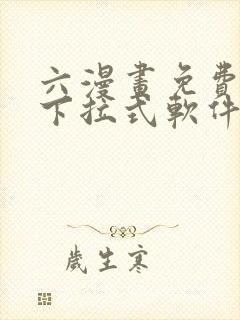 六漫畫免費
下拉式軟件
歲生寒